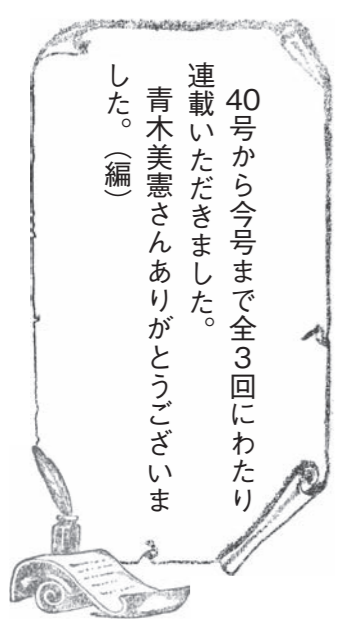 40号から今号まで全3回にわたり
連載いただきました。
青木美憲さんありがとうございま
した。（編）